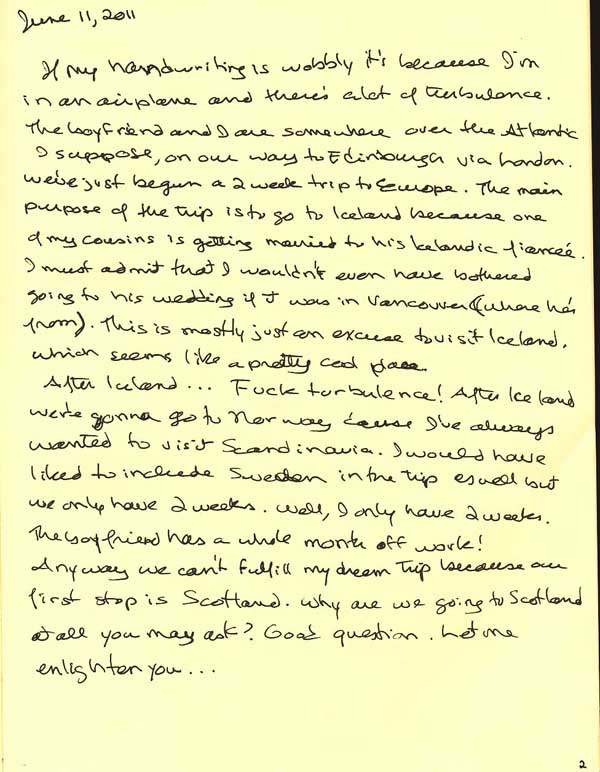 June 11, 2011
If my handwriting is wobbly it's because I'm
in an airplane and there's alot of turbulence.
The boyfriend and I are somewhere over the Atlantic
I suppose, on our way to Edinbourgh via London.
We've just begun a 2 week trip to Europe. The main
purpose of the trip is to go to Iceland because one
of my cousins is getting married to his Icelandic fianceé.
I must admit that I wouldn't even have bothered
going to his wedding if it was in Vancouver (where he's
from). This is mostly just an excuse to visit Iceland,
which seems like a pretty cool place.
After Iceland... Fuck turbulence! After Iceland
we're gonna go to Norway cause I've always
wanted to visit Scandinavia. I would have
liked to include Sweden in the trip as well but
we only have 2 weeks. Well, I only have 2 weeks.
The boyfriend has a whole month off work!
Anyway we can't fulfill my dream trip because our
first stop is Scotland. Why are we going to Scotland
at all you may ask? Good question. Let me
enlighten you...
2